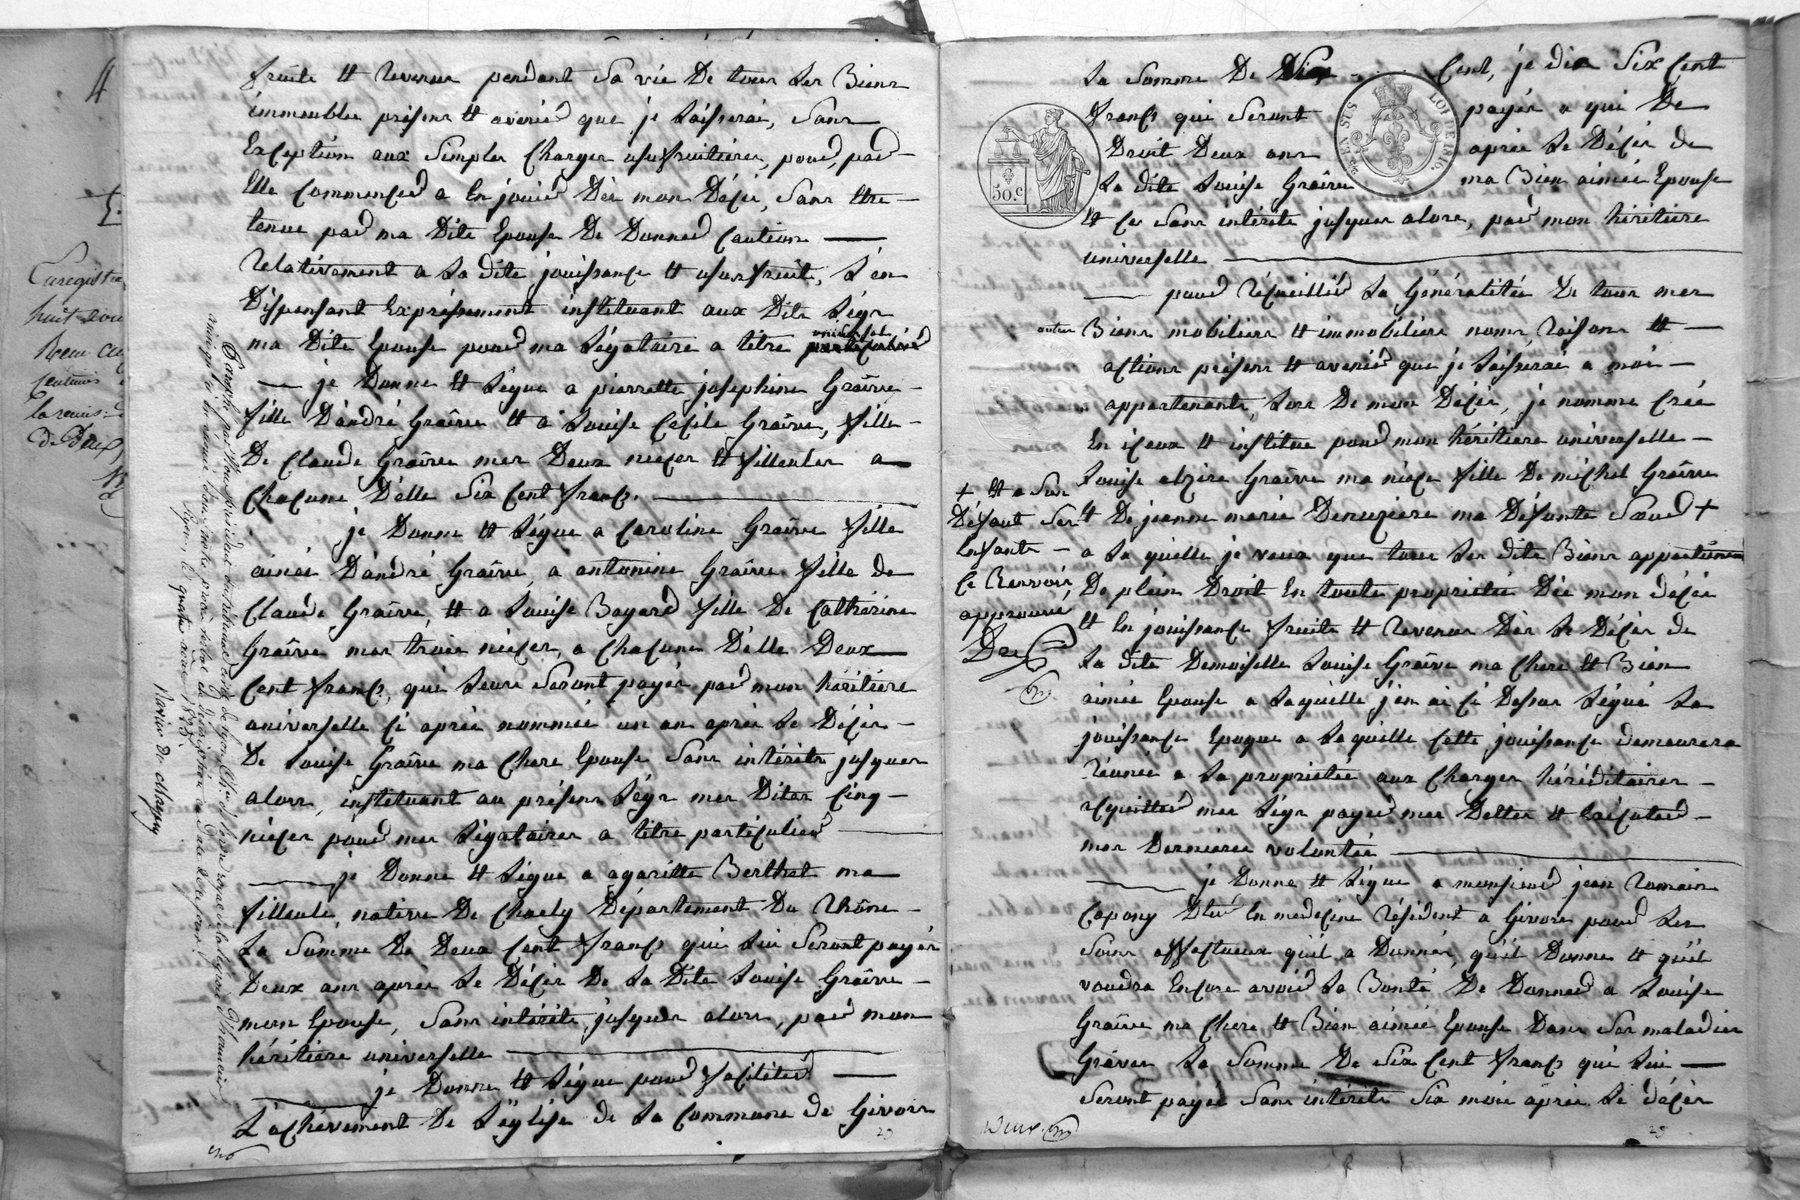 4
fruits et revenus pendant sa vie De tous les Biens
immeubles présens et avenir que je laisserai, sans
Exception aux simples Charges usufruitieres, pour, par
Elle Commencer a En jouir Dès mon Décès, sans Etre
tenue par ma Dite Epouse De Donner Caution
Relativement a la dite jouissance et usufruit, l'en
Dispensant Expressement instituant aux Dits légs
ma Dite Epouse pour ma légataire a titre universel
je Donne et légue a pierrette josephine Graîve
fille D'andré Graîve et a Louise Cécile Graîve, fille
De Claude Graîve mes Deux nieces et filleules a
Chacune D'elle Six Cent francs.
je Donne et légue a Caroline Graîve fille
ainée D'andré Graîve, a antonine Graîve fille de
Claude Graîve, et a Louise Bayard fille De Cathérine
Graîve mes trois nieces, a Chacune D'elle Deux
Cent francs, qui leurs Seront payés par mon héritiere
universelle Ci après nommée un an après le Décès
De Louise Graîve ma Chere Epouse Sans intérêts jusques
alors, instituant au présens légs mes Dites Cinq
nieces pour mes légataires a titre particulier
je Donne et légue a agaritte Berthet ma
filleule, native De Chaely Département Du Rhône
la Somme De Deux Cent francs qui lui Seront payés
Deux ans après le Décès De la Dite Louise Graîve
mon Epouse, Sans intérêts, jusques alors, par mon
héritiere universelle
je Donne et légue pour faciliter
L'achévement De L'église de la Commune de Givors
29
Enregistré
huit
Reçu
centimes
De Deux
Paraphé par Nous président du tribunal civil de Lyon, Chr de l'ordre royal de la légion d'honneur
Lyon, le quatre
la Somme De Cent, je dis Six Cent
francs qui Seront payés a qui De
Droit Deux ans après le Décès de
La dite Louise Graîve ma Bien aimée Epouse
et Ce Sans intérêts jusques alors, par mon héritiere
universelle
50.c
EN SUS
LOI DE 1816.
pour Récueillir la Généralitée De tous mes
autres Biens mobiliers et immobiliers noms, Raisons et
actions présens et avenir que je laisserai a moi
appartenants, lors De mon Décès, je nomme Crée
En iceux et institue pour mon héritiere universelle
Louise alzire Graîve ma niece fille De michel Graîve
et De jeanne marie Denuziere ma Défunte Sœur +
+ et a Son
Défaut Ses
Enfants
Ce Renvoi
approuvé
a la quelle je veux que tous les dits Biens appartiennent
De plein Droit En toute proprietée Dès mon décès
et En jouissance fruits et Revenus Dès le Décès de
la dite Demoiselle Louise Graîve ma Chere et Bien
aimée Epouse a laquelle j'en ai Ci Dessus légué la
jouissance Epoque a laquelle Cette jouissance demeurera
Réunie a la proprietée aux Charges héréditaires
acquitter mes légs payer mes Dettes et Exécuter
mes Dernieres volontés
je Donne et légue a monsieur jean Romain
Capony Dteur En medecine résident a Givors pour les
Soins affectueux qu'il a Donnés, qu'il Donne et qu'il
voudra Encore avoir la Bonté De Donner a Louise
Graîve ma Chere et Bien aimée Epouse Dans Ses maladies
Graves la Somme De Six Cent francs qui lui
Seront payés Sans intérêts Six mois après le décès
29